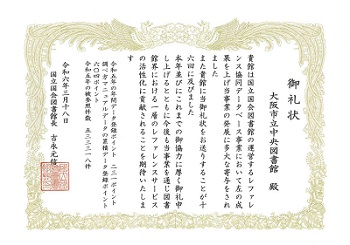 御礼状
大阪市立中央図書館 殿
貴館は国立国会図書館の運営するレファレ
ンス協同データベース事業において左の成
果を上げ当事業の発展に多大な寄与をされ
ました
また貴館に当御礼状をお送りすることが十
六回に及びました
本年並びにこれまでの御協力に厚く御礼申
し上げるとともに今後も当事業を通じ図書
館界における一層のレファレンスサービス
の活性化に貢献されることを期待いたしま
す
令和五年の年間データ登録ポイント 二二一ポイント
調べ方マニュアルデータの累積データ登録ポイント
六〇四ポイント
令和五年の被参照件数
令和六年三月十八日
国立国会図書館長 吉永元信